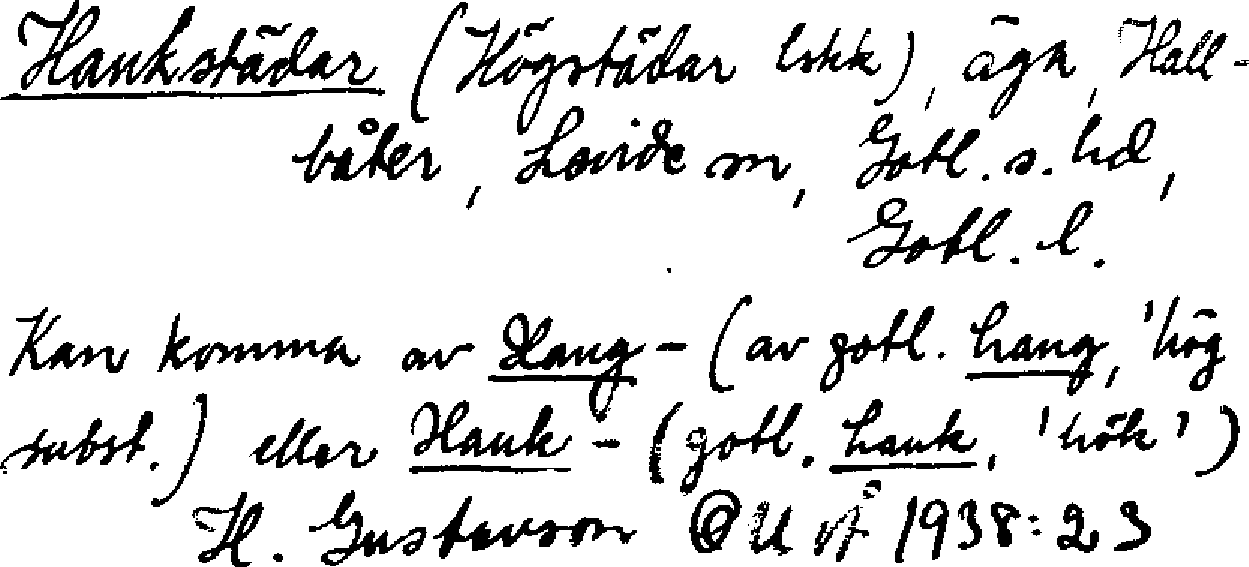 Haukstädar (Högstädar lskk), ägn, Hall-
båter, Levide sn, Gotl. s. hd,
Gotl. l.
Kan komma av Haug- (av gotl. haug, 'hög
subst.) eller Hauk- (gotl. hauk, 'hök')
H. Gustavson OUÅ 1938:23